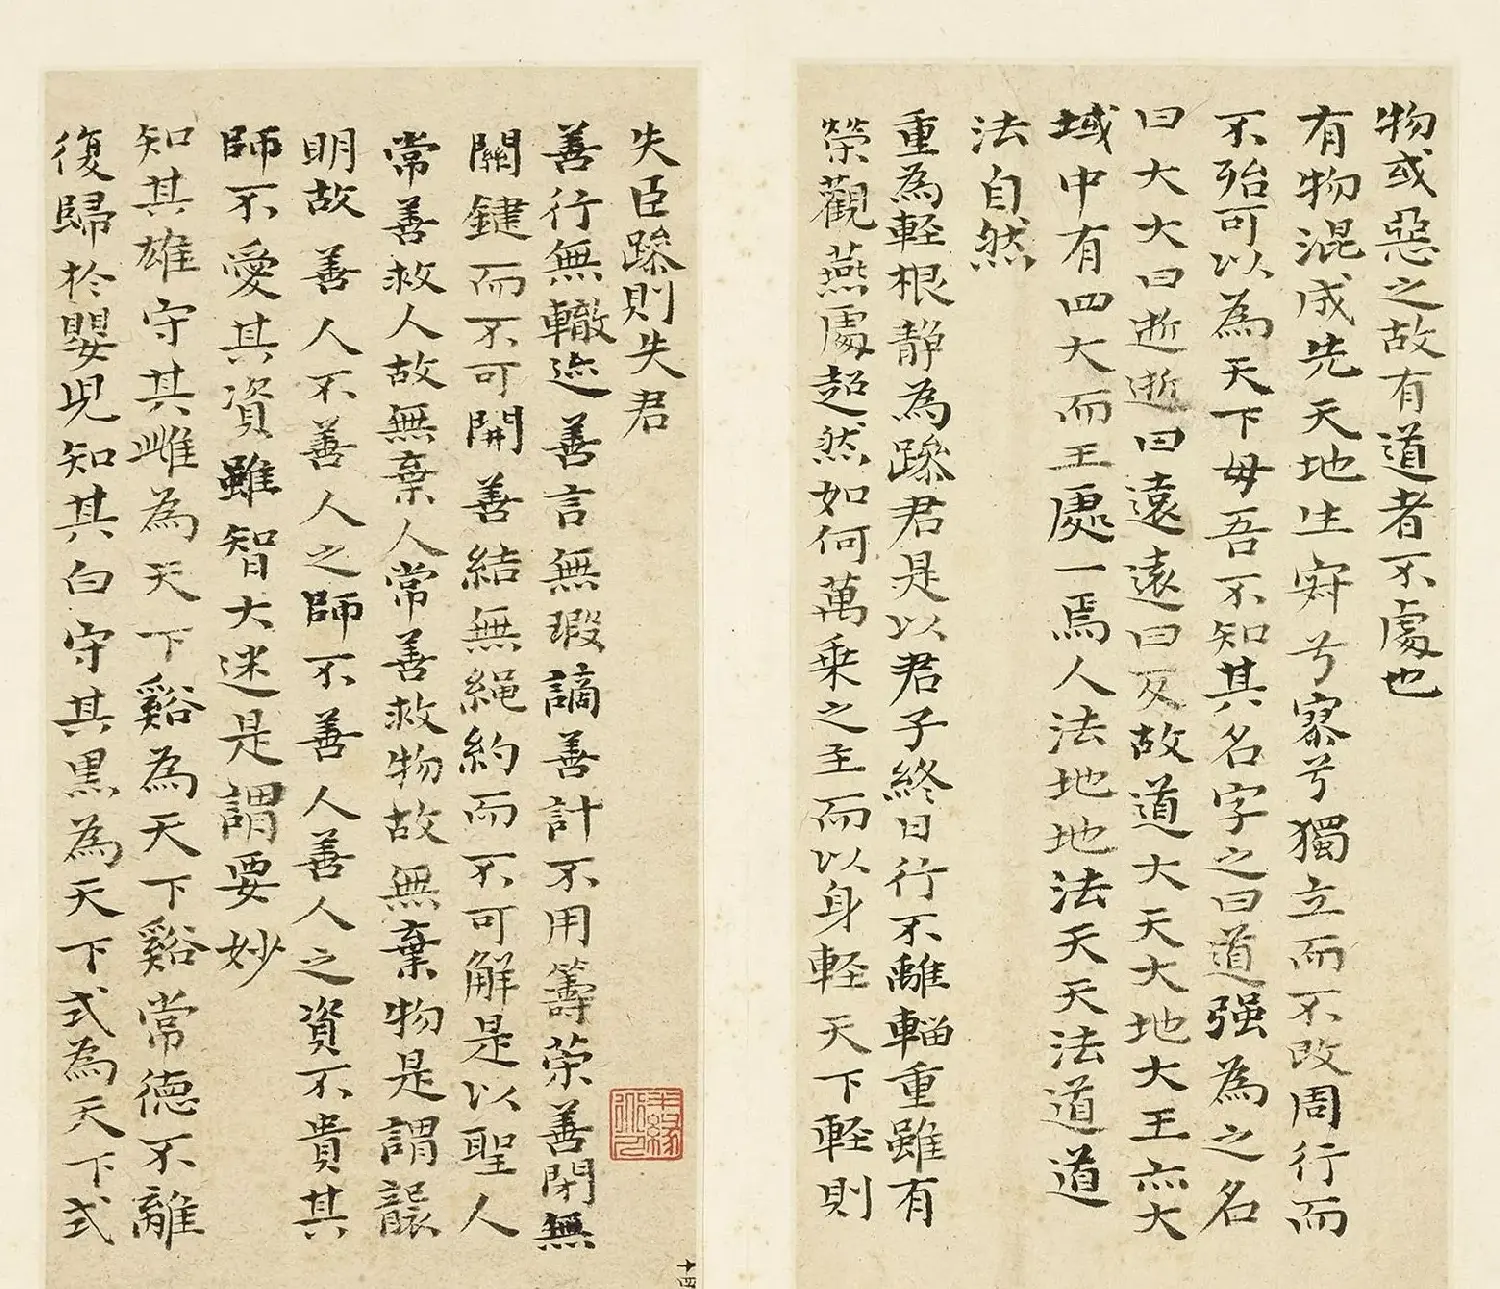 物或惡之故有道者不處也
有物混成先天地生寂兮寥兮獨立而不改周行而
不殆可以為天下母吾不知其名字之曰道强為之名
曰大大曰逝逝曰遠遠曰反故道大天大地大王亦大
域中有四大而王處一焉人法地地法天天法道道
法自然
重為輕根静為躁君是以君子終日行不離輜重雖有
榮觀燕處超然如何萬乘之主而以身輕天下輕則
失臣躁則失君
善行無轍迹善言無瑕謫善計不用籌策善閉無
關鍵而不可開善結無繩約而不可解是以聖人
常善救人故無棄人常善救物故無棄物是謂襲
明故善人不善人之師不善人善人之資不貴其
師不愛其資雖智大迷是謂要妙
知其雄守其雌為天下谿為天下谿常德不離
復歸於嬰兒知其白守其黑為天下式為天下式
十四